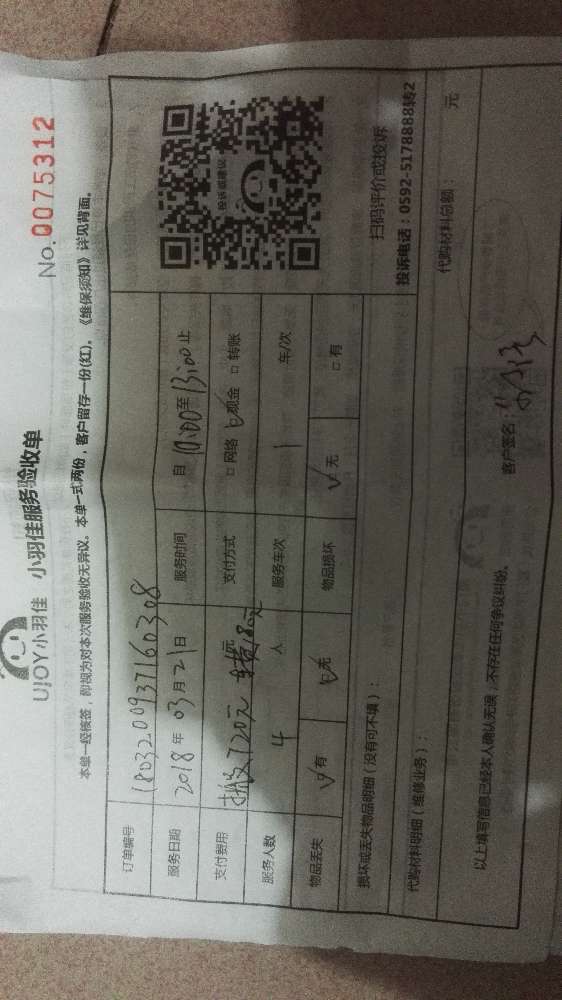 UJOY小羽佳 小羽佳服务验收单
No.0075312
本单一经核签，即视为对本次服务验收无异议。本单一式两份，客户留存一份(红)。《维保须知》详见背面。
订单编号 1803200937160308
服务日期 2018年03月21日 服务时间 自10:00至13:00止
支付费用 720元 元 支付方式 □网络 ☑现金 □转账
服务人数 4 人 服务车次 1 车/次
物品丢失 有 无 物品损坏 无 □有
投诉或建议
扫码评价或投诉
投诉电话：0592-5178888转2
损坏或丢失物品明细（没有可不填）：
代购材料明细（维修业务）： 代购材料总额： 元
以上填写信息已经本人确认无误，不存在任何争议纠纷。 客户签名：